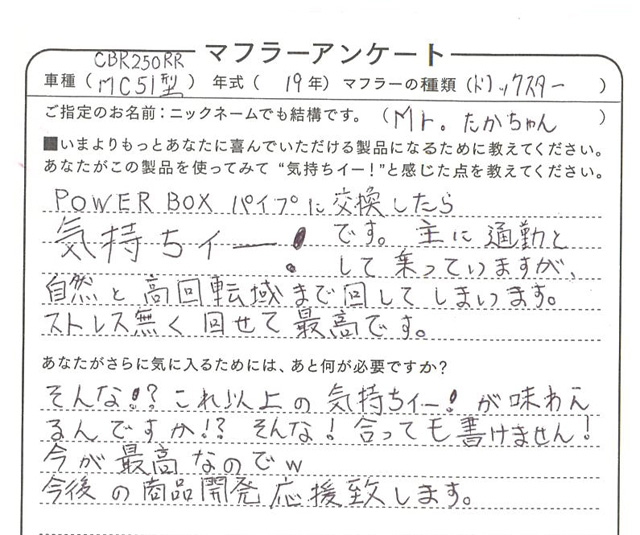 マフラーアンケート
CBR250RR
車種（MC51型）年式（19年）マフラーの種類（ドラッグスター）
ご指定のお名前：ニックネームでも結構です。（Mr. たかちゃん）
■いまよりもっとあなたに喜んでいただける製品になるために教えてください。
あなたがこの製品を使ってみて“気持ちイー！”と感じた点を教えてください。
POWER BOX パイプに交換したら
気持ちイー！です。主に通勤と
して乗っていますが、
自然と高回転域まで回してしまいます。
ストレス無く回せて最高です。
あなたがさらに気に入るためには、あと何が必要ですか？
そんな！？これ以上の気持ちイー！が味わえ
るんですか！？そんな！合っても書けません！
今が最高なのでw
今後の商品開発応援致します。